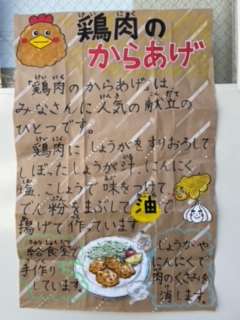 鶏肉の
からあげ
「鶏肉のからあげ」は
みなさんに人気の献立の
ひとつです。
鶏肉にしょうがをすりおろして
しぼったしょうが汁、にんにく、
塩、こしょうで味をつけて、
でん粉をまぶして油で
揚げて作っています。
給食室で
手作り
しています。
しょうがや
にんにくで
肉のくさみを
消します。